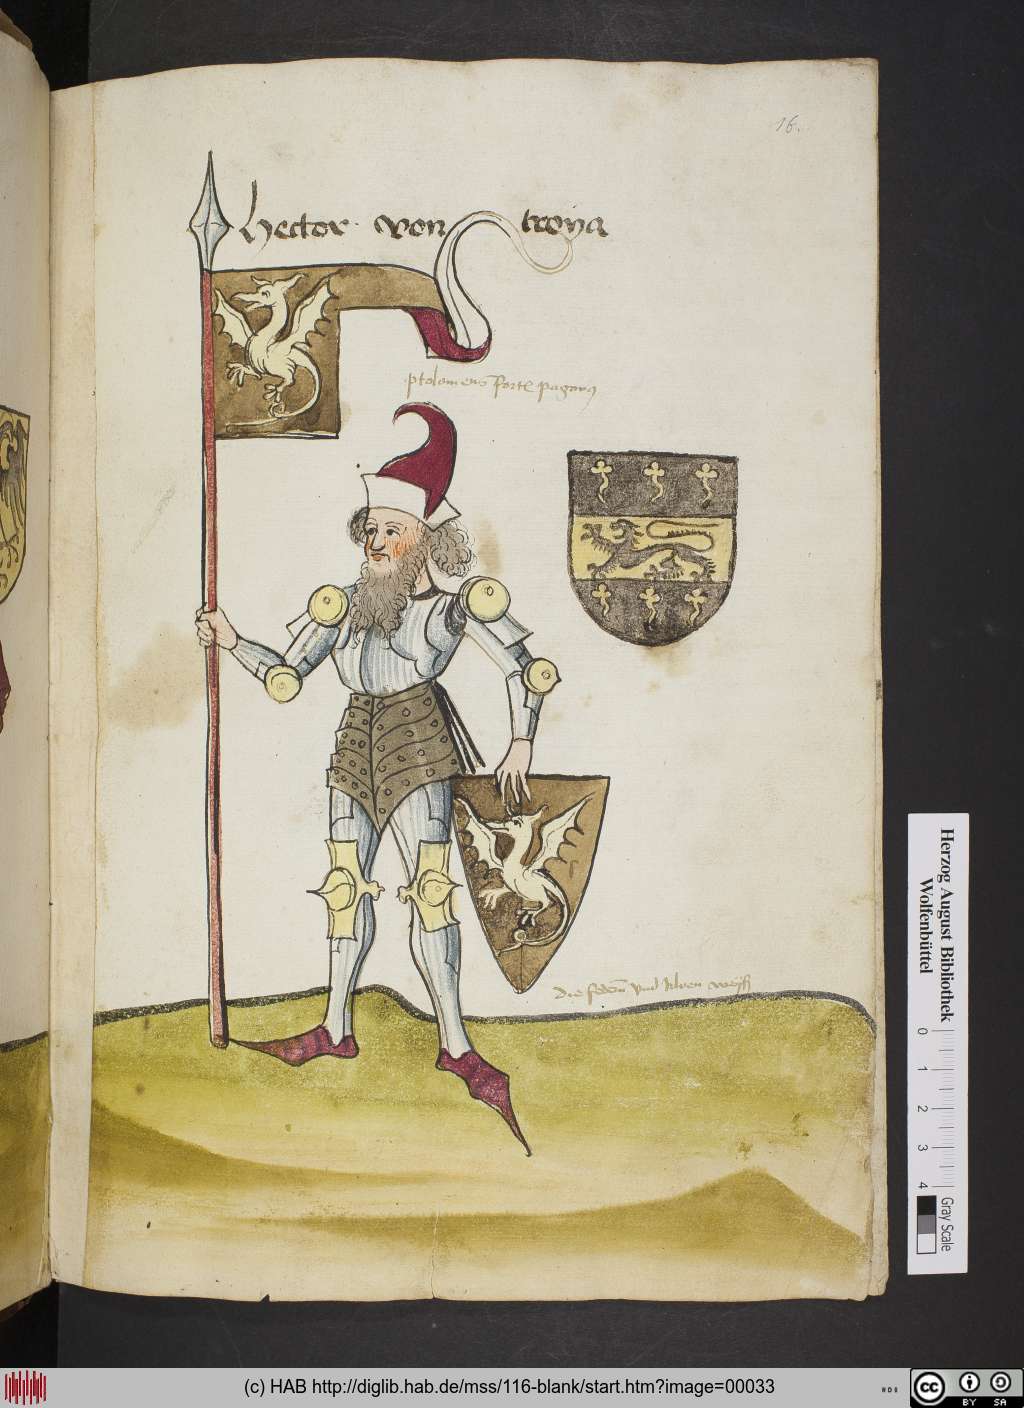 16.
hector von troya
ptolomeus forte paganus
die federn vnd kloen weyß
Herzog August Bibliothek
Wolfenbüttel
0 1 2 3 4
Gray Scale
(c) HAB http://diglib.hab.de/mss/116-blank/start.htm?image=00033
cc BY SA